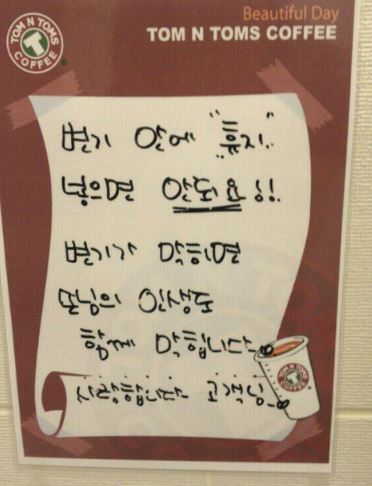 Beautiful Day
TOM N TOMS COFFEE
TOM N TOMS COFFEE
변기 안에 "휴지"
넣으면 안되요!!
변기가 막히면
손님의 인생도
함께 막힙니다
사랑합니다 고객님